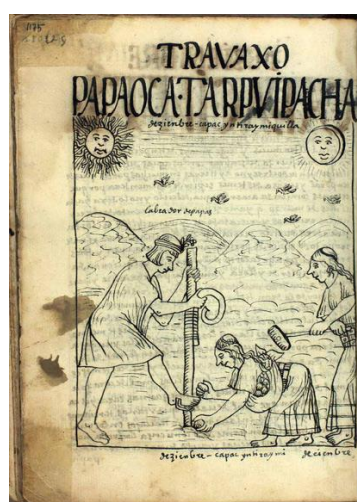 1175
TRAVAXO
PAPAOCA·TARPVIPACHA
dezienbre - capac yntiraymiquilla
labrador de papas
dezienbre - capac yntiraymi
deciembre